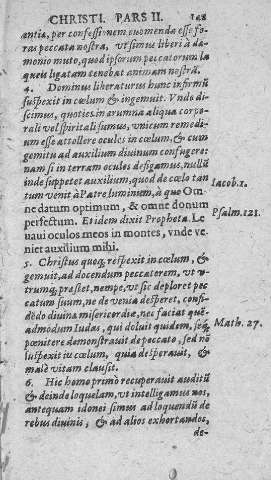 CHRISTI. PARS II. 148
antia, per confessionem euomenda esse fo-
ras peccata nostra, vt simus liberi à dæ-
monio muto, quod ipsorum peccatorum la
queis ligatam tenebat animam nostrã.
4. Dominus liberaturus hunc infirmũ
suspexit in cœlum & ingemuit. Vnde di-
scimus, quoties in ærumna aliqua corpo-
rali vel spirituali sumus, vnicum remedi-
um esse attollere oculos in cœlum, & cum
gemitu ad auxilium diuinum confugere:
nam si in terram oculos defigamus, nullũ
inde suppetet auxilium, quod de cœlo tan
tum venit à Patre luminum, à quo Om-
ne datum optimum, & omne donum
perfectum. Et idem dixit Propheta. Le
uaui oculos meos in montes, vnde ve-
niet auxilium mihi.
Iacob. 1.
Psalm. 121.
5. Christus quoq; respexit in cœlum, &
gemuit, ad docendum peccatorem, vt v-
trumq; præstet, nempe, vt sic deploret pec
catum suum, ne de venia desperet, confi-
dẽdo diuina misericordiæ, nec faciat que-
admodum Iudas, qui doluit quidem, seq;
pœnitere demonstrauit de peccato, sed nõ
suspexit in cœlum, quia desperauit, &
malè vitam clausit.
Math. 27.
6. Hic homo primò recuperauit auditũ
& deinde loquelam, vt intelligamus nos,
antequam idonei simus ad loquendũ de
rebus diuinis, & ad alios exhortandos,
de-